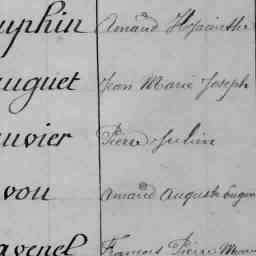 uphin Amand Hyacinthe
auguet Jean Marie Joseph
uvier Pierre Julien
von Amand Auguste Eugen
avenel François Pierre Marie